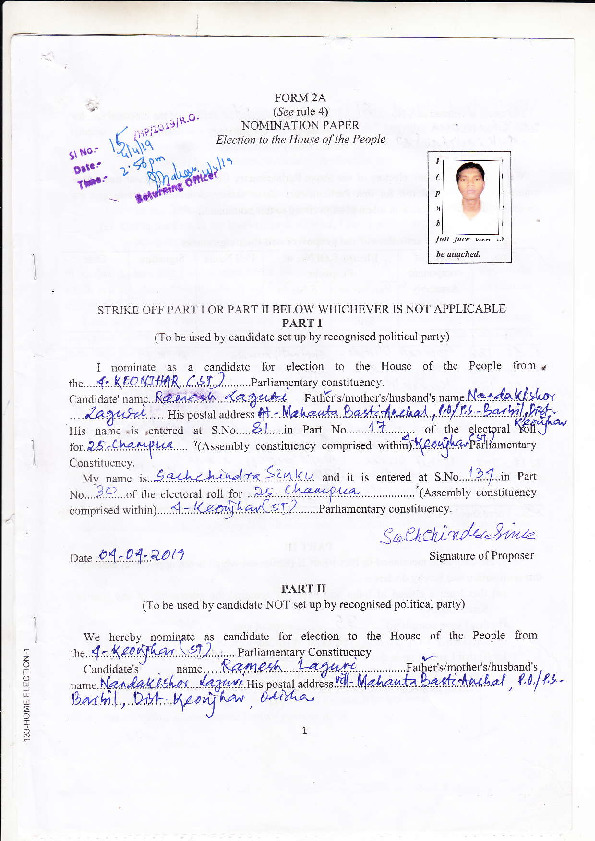 FORM 2A
(See rule 4)
NOMINATION PAPER
Election to the House of the People
Sl No:- 15 /HP/2019/R.O.
Date:- 4/19
Time:- 2.58 pm
Returning Officer
full face
be attached.
STRIKE OFF PART I OR PART II BELOW WHICHEVER IS NOT APPLICABLE
PART I
(To be used by candidate set up by recognised political party)
I nominate as a candidate for election to the House of the People from
the....4- KEONJHAR (ST)........Parliamentary constituency.
Candidate' name..Ramesh Laguri Father's/mother's/husband's name Nandakishor
Laguri.... His postal address At - Mahanta Basti Anchal, P.O/P.S - Barbil, Dist - Keonjhar
His name is entered at S.No....81....in Part No.....17.........of the electoral roll
for 25-Champua.... *(Assembly constituency comprised within) 4-Keonjhar (ST) Parliamentary
Constituency.
My name is..Sachchindra Sinku and it is entered at S.No...134..in Part
No....20...of the electoral roll for ..25 Champua.................*(Assembly constituency
comprised within)....4-Keonjhar (ST).......Parliamentary constituency.
Date 04-04-2019
Signature of Proposer
PART II
(To be used by candidate NOT set up by recognised political party)
We hereby nominate as candidate for election to the House of the People from
the..4-Keonjhar (ST)....... Parliamentary Constituency
Candidate's name.....Ramesh Laguri................Father's/mother's/husband's
name.Nandakishor Laguri His postal address Vill- Mahanta Basti Anchal, P.O./P.S-
Barbil, Dist- Keonjhar, Odisha
1
133-HOME ELECTION-1